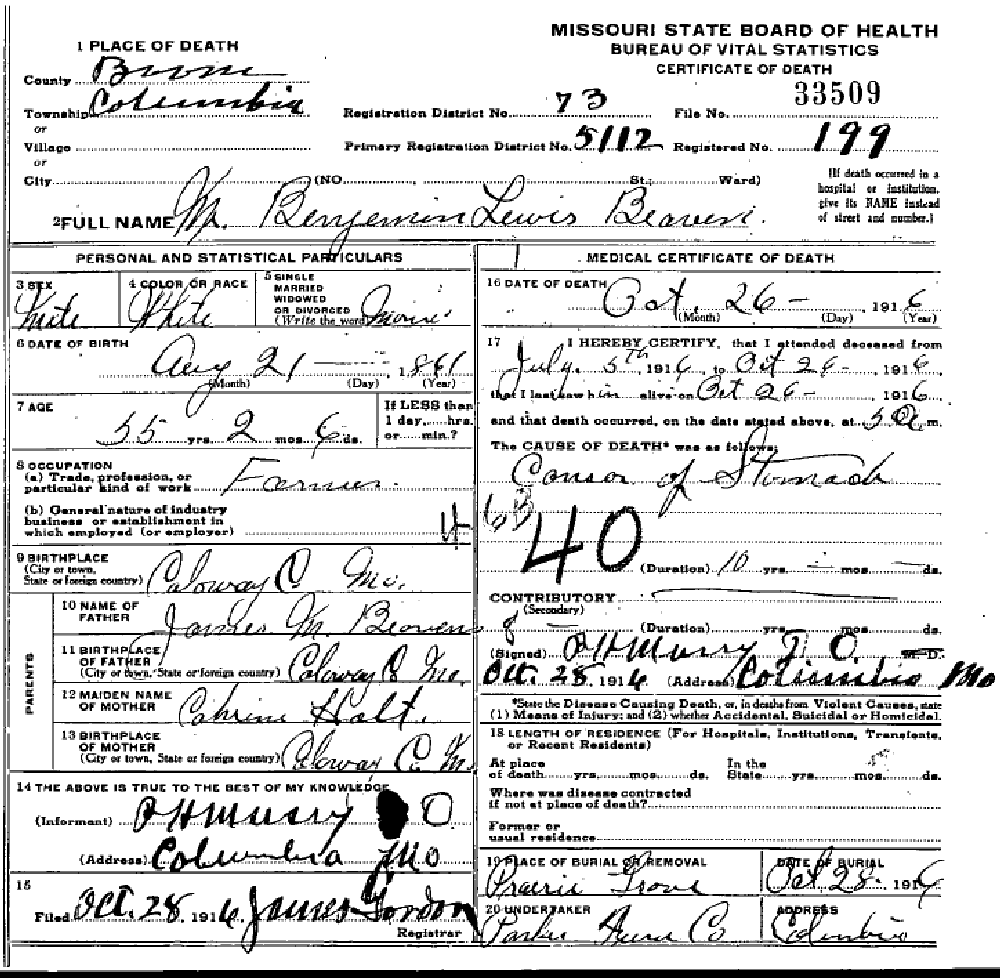 MISSOURI STATE BOARD OF HEALTH
BUREAU OF VITAL STATISTICS
CERTIFICATE OF DEATH
1 PLACE OF DEATH
County Boone
Township Columbia
or
Village
or
City (NO. , St.; Ward)
Registration District No. 73 File No. 33509
Primary Registration District No. 5112 Registered No. 199
[If death occurred in a
hospital or institution,
give its NAME instead
of street and number.]
2 FULL NAME Mr. Benjemin Lewis Beaven
PERSONAL AND STATISTICAL PARTICULARS
3 SEX
4 COLOR OR RACE White
5 SINGLE
MARRIED
WIDOWED
OR DIVORCED
(Write the word)
6 DATE OF BIRTH Aug 21 — , 1861
(Month) (Day) (Year)
7 AGE 55 yrs. 2 mos. 6 ds.
If LESS than
1 day, hrs.
or min.?
8 OCCUPATION
(a) Trade, profession, or
particular kind of work Farmer
(b) General nature of industry
business or establishment in
which employed (or employer) 4
9 BIRTHPLACE
(City or town,
State or foreign country) Caloway C Mo.
PARENTS
10 NAME OF
FATHER James M. Beavens
11 BIRTHPLACE
OF FATHER
(City or town, State or foreign country) Caloway C Mo.
12 MAIDEN NAME
OF MOTHER Cahrine Holt.
13 BIRTHPLACE
OF MOTHER
(City or town, State or foreign country) Caloway C Mo
14 THE ABOVE IS TRUE TO THE BEST OF MY KNOWLEDGE
(Informant) P H Murry D O
(Address) Columbia Mo
15
Filed Oct. 28, 1916 James Gordon
Registrar
MEDICAL CERTIFICATE OF DEATH
16 DATE OF DEATH Oct. 26 - , 1916
(Month) (Day) (Year)
17 I HEREBY CERTIFY, that I attended deceased from
July. 5th 1916 to Oct 26 - , 1916
that I last saw him alive on Oct 26 - , 1916
and that death occurred, on the date stated above, at 5 a m.
The CAUSE OF DEATH* was as follows:
Canser of Stomach
63
40
(Duration) 10 yrs. — mos. — ds.
CONTRIBUTORY
(Secondary)
(Duration) yrs. mos. ds.
(Signed) P H Murry D. O. M. D.
Oct. 28, 1916 (Address) Columbia Mo
*State the Disease Causing Death, or, in deaths from Violent Causes, state
(1) Means of Injury; and (2) whether Accidental, Suicidal or Homicidal.
18 LENGTH OF RESIDENCE (For Hospitals, Institutions, Transients,
or Recent Residents)
At place
of death yrs. mos. ds.
In the
State yrs. mos. ds.
Where was disease contracted
if not at place of death?
Former or
usual residence
19 PLACE OF BURIAL OR REMOVAL
Prairie Grove
DATE OF BURIAL
Oct 28 - 1916
20 UNDERTAKER
Parker Furn Co
ADDRESS
Columbia